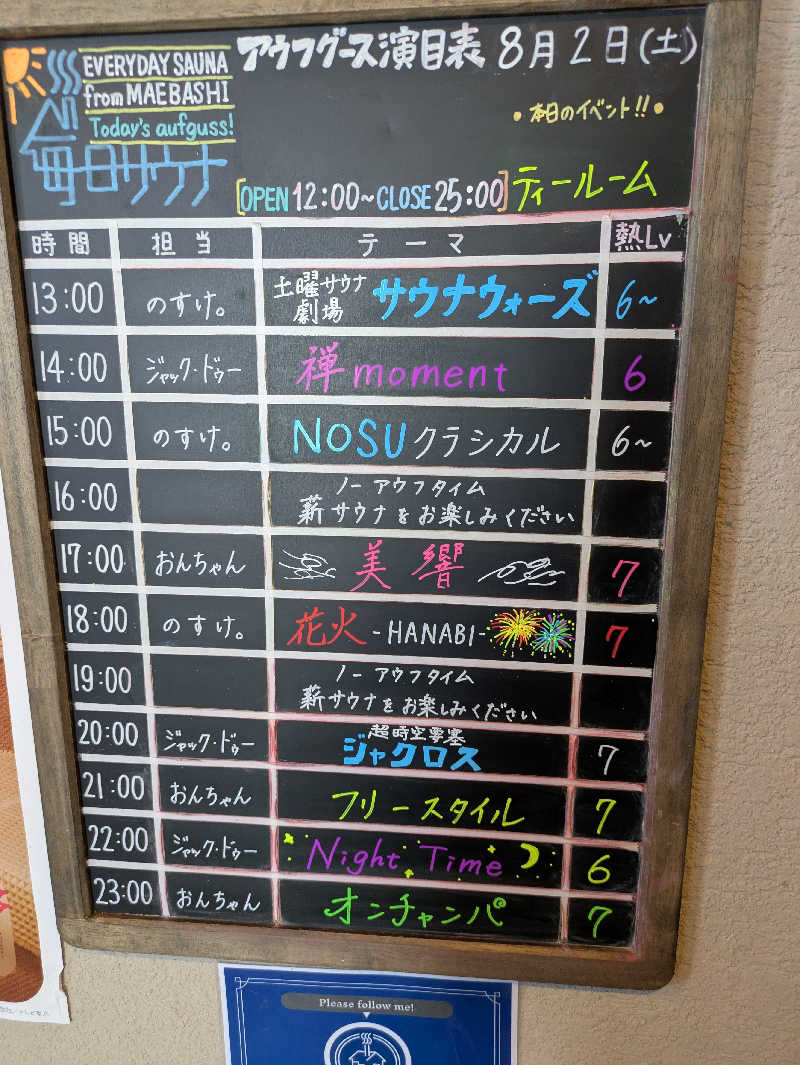 EVERYDAY SAUNA
from MAEBASHI
Today's aufguss!
毎日サウナ
アウフグース演目表 8月2日(土)
•本日のイベント!!•
[OPEN 12:00~CLOSE 25:00] ティールーム
時間 担当 テーマ 熱Lv
13:00 のすけ。 土曜サウナ劇場 サウナウォーズ 6~
14:00 ジャック・ドゥー 禅moment 6
15:00 のすけ。 NOSUクラシカル 6~
16:00 ノーアウフタイム
薪サウナをお楽しみください
17:00 おんちゃん 美響 7
18:00 のすけ。 花火-HANABI- 7
19:00 ノーアウフタイム
薪サウナをお楽しみください
20:00 ジャック・ドゥー 超時空要塞
ジャクロス 7
21:00 おんちゃん フリースタイル 7
22:00 ジャック・ドゥー Night Time 6
23:00 おんちゃん オンチャンパ 7
Please follow me!